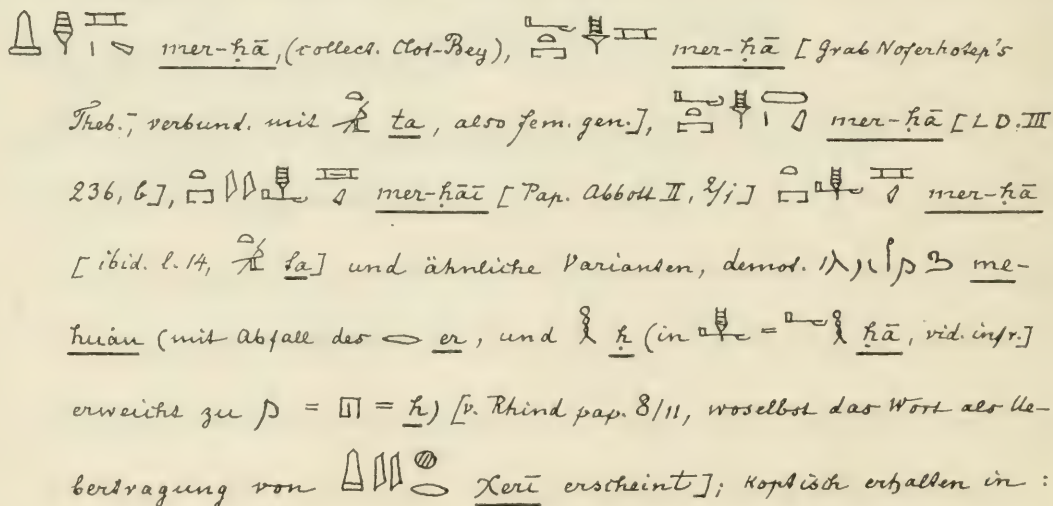 mer-ḥā, (collect. Clot-Bey), mer-ḥā [Grab Noferhotep's
Theb.; verbund. mit ta, also fem. gen.], mer-ḥā [L D. III
236, b], mer-ḥāi [Pap. Abbott II, 2/1] mer-ḥā
[ibid. l. 14, ta] und ähnliche Varianten, demot. me-
huáu (mit Abfall des er, und ḥ (in = ḥā, vid. infr.]
erweicht zu = h) [v. Rhind pap. 8/11, woselbst das Wort als Ue-
bertragung von Xerī erscheint]; koptisch erhalten in :